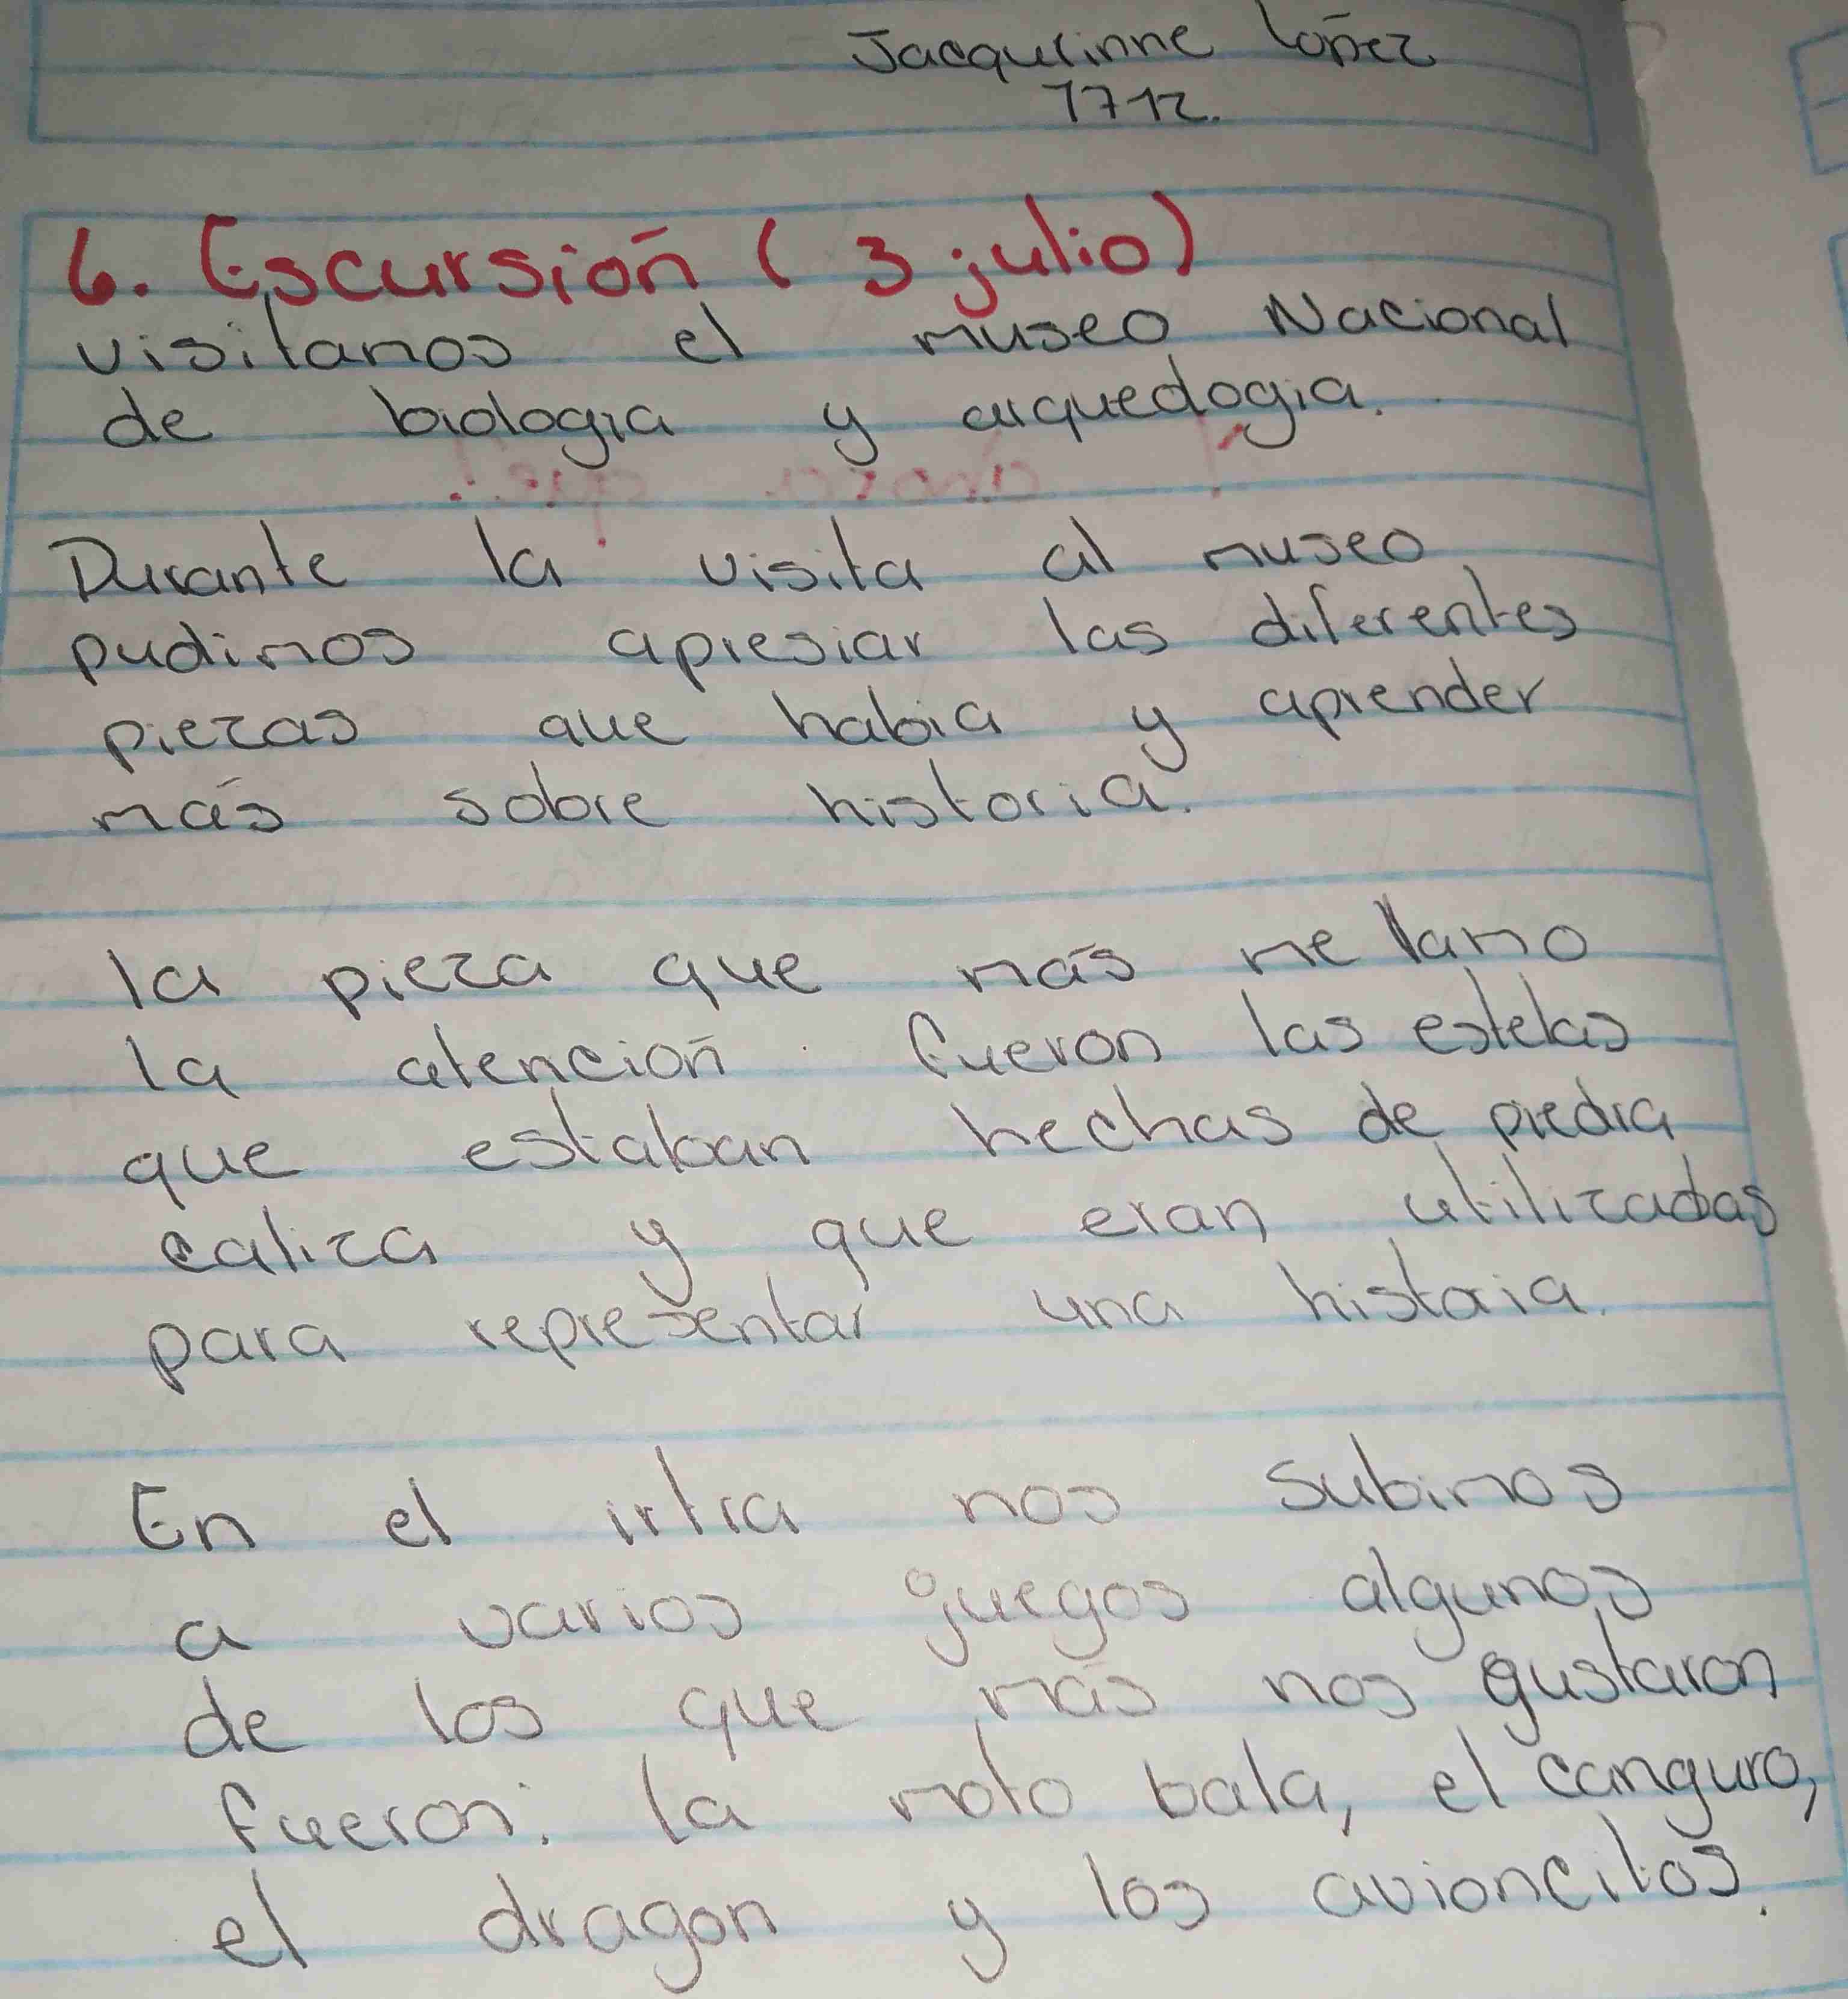 Jacquelinne López
7712.
6. Escursión (3 julio)
visitamos el museo Nacional
de biologia y arqueologia.
Durante la visita al museo
pudimos apresiar las diferentes
piezas que habia y aprender
más sobre historia.
la pieza que más me llamo
la atención fueron las estelas
que estaban hechas de piedra
caliza y que eran utilizadas
para representar una historia.
En el irtra nos subimos
a varios juegos algunos
de los que más nos gustaron
fueron: la moto bala, el canguro,
el dragon y los avioncitos.